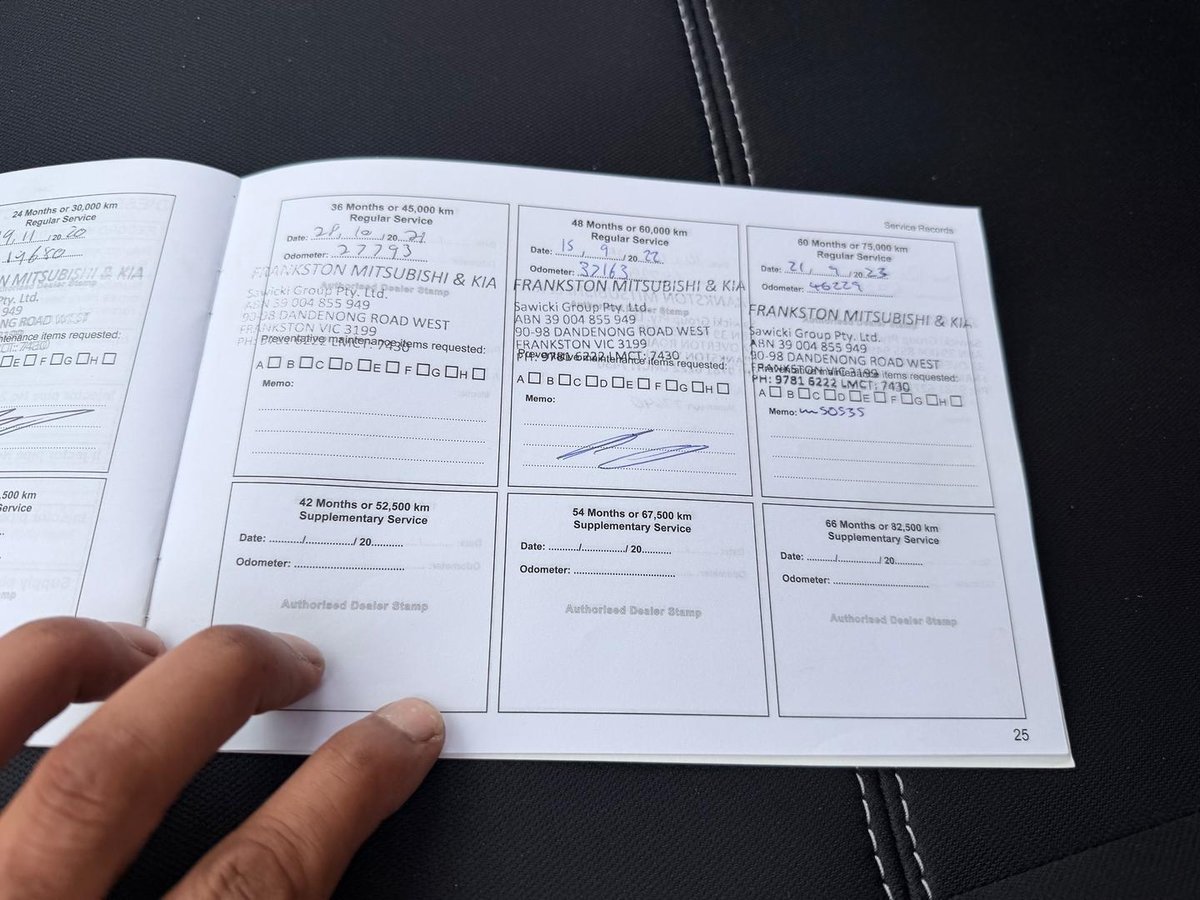 24 Months or 30,000 km
Regular Service
9.11 / 20 20
19680
N MITSUBISHI & KIA
Dealer Stamp
Pty. Ltd.
949
NONG ROAD WEST
nance items requested:
E F G H
,500 km
ervice
Service Records
36 Months or 45,000 km
Regular Service
Date: 28, 10 / 20 21
Odometer: 27793
FRANKSTON MITSUBISHI & KIA
Authorised Dealer Stamp
Sawicki Group Pty. Ltd.
ABN 39 004 855 949
90-98 DANDENONG ROAD WEST
FRANKSTON VIC 3199
Preventative maintenance items requested:
A B C D E F G H
Memo:
48 Months or 60,000 km
Regular Service
Date: 15, 9 / 20 22
Odometer: 37163
FRANKSTON MITSUBISHI & KIA
Sawicki Group Pty. Ltd.
ABN 39 004 855 949
90-98 DANDENONG ROAD WEST
FRANKSTON VIC 3199
Preventative maintenance items requested:
PH: 9781 6222 LMCT: 7430
A B C D E F G H
Memo:
60 Months or 75,000 km
Regular Service
Date: 21, 9 / 20 23
Odometer: 46229
FRANKSTON MITSUBISHI & KIA
Sawicki Group Pty. Ltd.
ABN 39 004 855 949
90-98 DANDENONG ROAD WEST
FRANKSTON VIC 3199
Preventative maintenance items requested:
PH: 9781 6222 LMCT: 7430
A B C D E F G H
Memo: m50535
42 Months or 52,500 km
Supplementary Service
Date: ........../............../ 20..........
Odometer: ..................................
Authorised Dealer Stamp
54 Months or 67,500 km
Supplementary Service
Date: ........../............../ 20..........
Odometer: ..................................
Authorised Dealer Stamp
66 Months or 82,500 km
Supplementary Service
Date: ........../............../ 20..........
Odometer: ..................................
Authorised Dealer Stamp
25